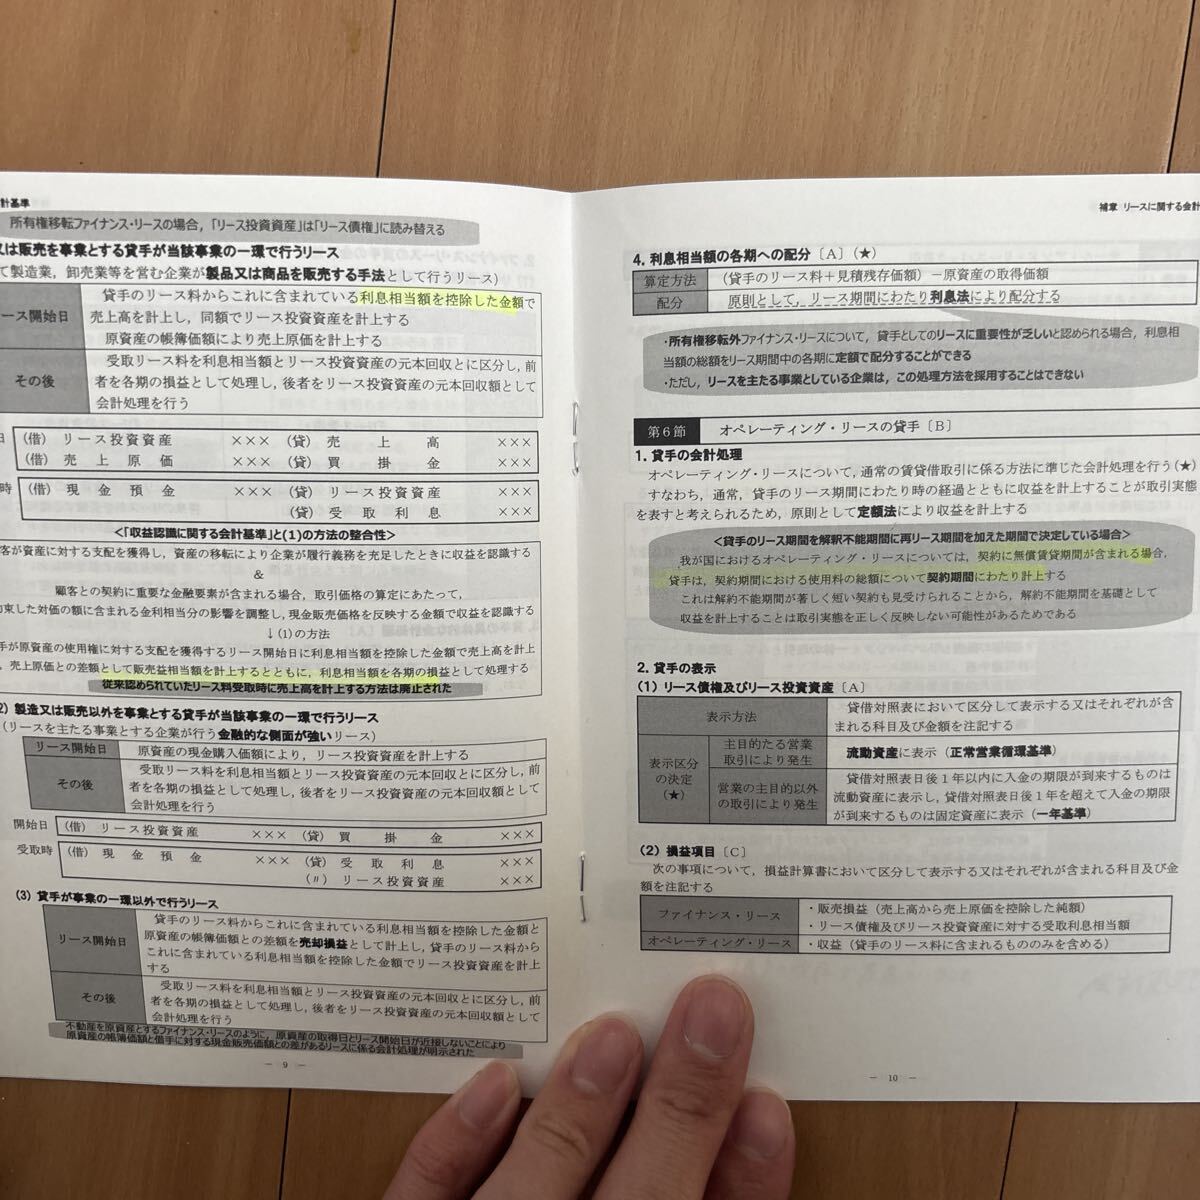 計基準
所有権移転ファイナンス・リースの場合，「リース投資資産」は「リース債権」に読み替える
又は販売を事業とする貸手が当該事業の一環で行うリース
て製造業，卸売業等を営む企業が製品又は商品を販売する手法として行うリース）
ース開始日
貸手のリース料からこれに含まれている利息相当額を控除した金額で
売上高を計上し，同額でリース投資資産を計上する
原資産の帳簿価額により売上原価を計上する
その後
受取リース料を利息相当額とリース投資資産の元本回収とに区分し，前
者を各期の損益として処理し，後者をリース投資資産の元本回収額として
会計処理を行う
日 （借） リース投資資産 ××× （貸） 売上高 ×××
（借） 売上原価 ××× （貸） 買掛金 ×××
時 （借） 現金預金 ××× （貸） リース投資資産 ×××
（貸） 受取利息 ×××
＜「収益認識に関する会計基準」と(1)の方法の整合性＞
客が資産に対する支配を獲得し，資産の移転により企業が履行義務を充足したときに収益を認識する
＆
顧客との契約に重要な金融要素が含まれる場合，取引価格の算定にあたって，
束した対価の額に含まれる金利相当分の影響を調整し，現金販売価格を反映する金額で収益を認識する
↓(1)の方法
手が原資産の使用権に対する支配を獲得するリース開始日に利息相当額を控除した金額で売上高を計上
，売上原価との差額として販売益相当額を計上するとともに，利息相当額を各期の損益として処理する
従来認められていたリース料受取時に売上高を計上する方法は廃止された
2) 製造又は販売以外を事業とする貸手が当該事業の一環で行うリース
（リースを主たる事業とする企業が行う金融的な側面が強いリース）
リース開始日
原資産の現金購入価額により，リース投資資産を計上する
その後
受取リース料を利息相当額とリース投資資産の元本回収とに区分し，前
者を各期の損益として処理し，後者をリース投資資産の元本回収額として
会計処理を行う
開始日 （借） リース投資資産 ××× （貸） 買掛金 ×××
受取時 （借） 現金預金 ××× （貸） 受取利息 ×××
（〃） リース投資資産 ×××
(3) 貸手が事業の一環以外で行うリース
リース開始日
貸手のリース料からこれに含まれている利息相当額を控除した金額と
原資産の帳簿価額との差額を売却損益として計上し，貸手のリース料から
これに含まれている利息相当額を控除した金額でリース投資資産を計上
する
その後
受取リース料を利息相当額とリース投資資産の元本回収とに区分し，前
者を各期の損益として処理し，後者をリース投資資産の元本回収額として
会計処理を行う
不動産を原資産とするファイナンス・リースのように，原資産の取得日とリース開始日が近接しないことにより
原資産の帳簿価額と借手に対する現金販売価額との差があるリースに係る会計処理が明示された
－ 9 －
補章 リースに関する会計
4. 利息相当額の各期への配分〔A〕（★）
算定方法 （貸手のリース料＋見積残存価額）－原資産の取得価額
配分 原則として，リース期間にわたり利息法により配分する
・所有権移転外ファイナンス・リースについて，貸手としてのリースに重要性が乏しいと認められる場合，利息相
当額の総額をリース期間中の各期に定額で配分することができる
・ただし，リースを主たる事業としている企業は，この処理方法を採用することはできない
第6節 オペレーティング・リースの貸手〔B〕
1. 貸手の会計処理
オペレーティング・リースについて，通常の賃貸借取引に係る方法に準じた会計処理を行う（★）
すなわち，通常，貸手のリース期間にわたり時の経過とともに収益を計上することが取引実態
を表すと考えられるため，原則として定額法により収益を計上する
＜貸手のリース期間を解釈不能期間に再リース期間を加えた期間で決定している場合＞
我が国におけるオペレーティング・リースについては，契約に無償賃貸期間が含まれる場合，
貸手は，契約期間における使用料の総額について契約期間にわたり計上する
これは解約不能期間が著しく短い契約も見受けられることから，解約不能期間を基礎として
収益を計上することは取引実態を正しく反映しない可能性があるためである
2. 貸手の表示
(1) リース債権及びリース投資資産〔A〕
表示方法
貸借対照表において区分して表示する又はそれぞれが含
まれる科目及び金額を注記する
表示区分
の決定
（★）
主目的たる営業
取引により発生
流動資産に表示（正常営業循環基準）
営業の主目的以外
の取引により発生
貸借対照表日後1年以内に入金の期限が到来するものは
流動資産に表示し，貸借対照表日後1年を超えて入金の期限
が到来するものは固定資産に表示（一年基準）
(2) 損益項目〔C〕
次の事項について，損益計算書において区分して表示する又はそれぞれが含まれる科目及び金
額を注記する
ファイナンス・リース
・販売損益（売上高から売上原価を控除した純額）
・リース債権及びリース投資資産に対する受取利息相当額
オペレーティング・リース ・収益（貸手のリース料に含まれるもののみを含める）
－ 10 －